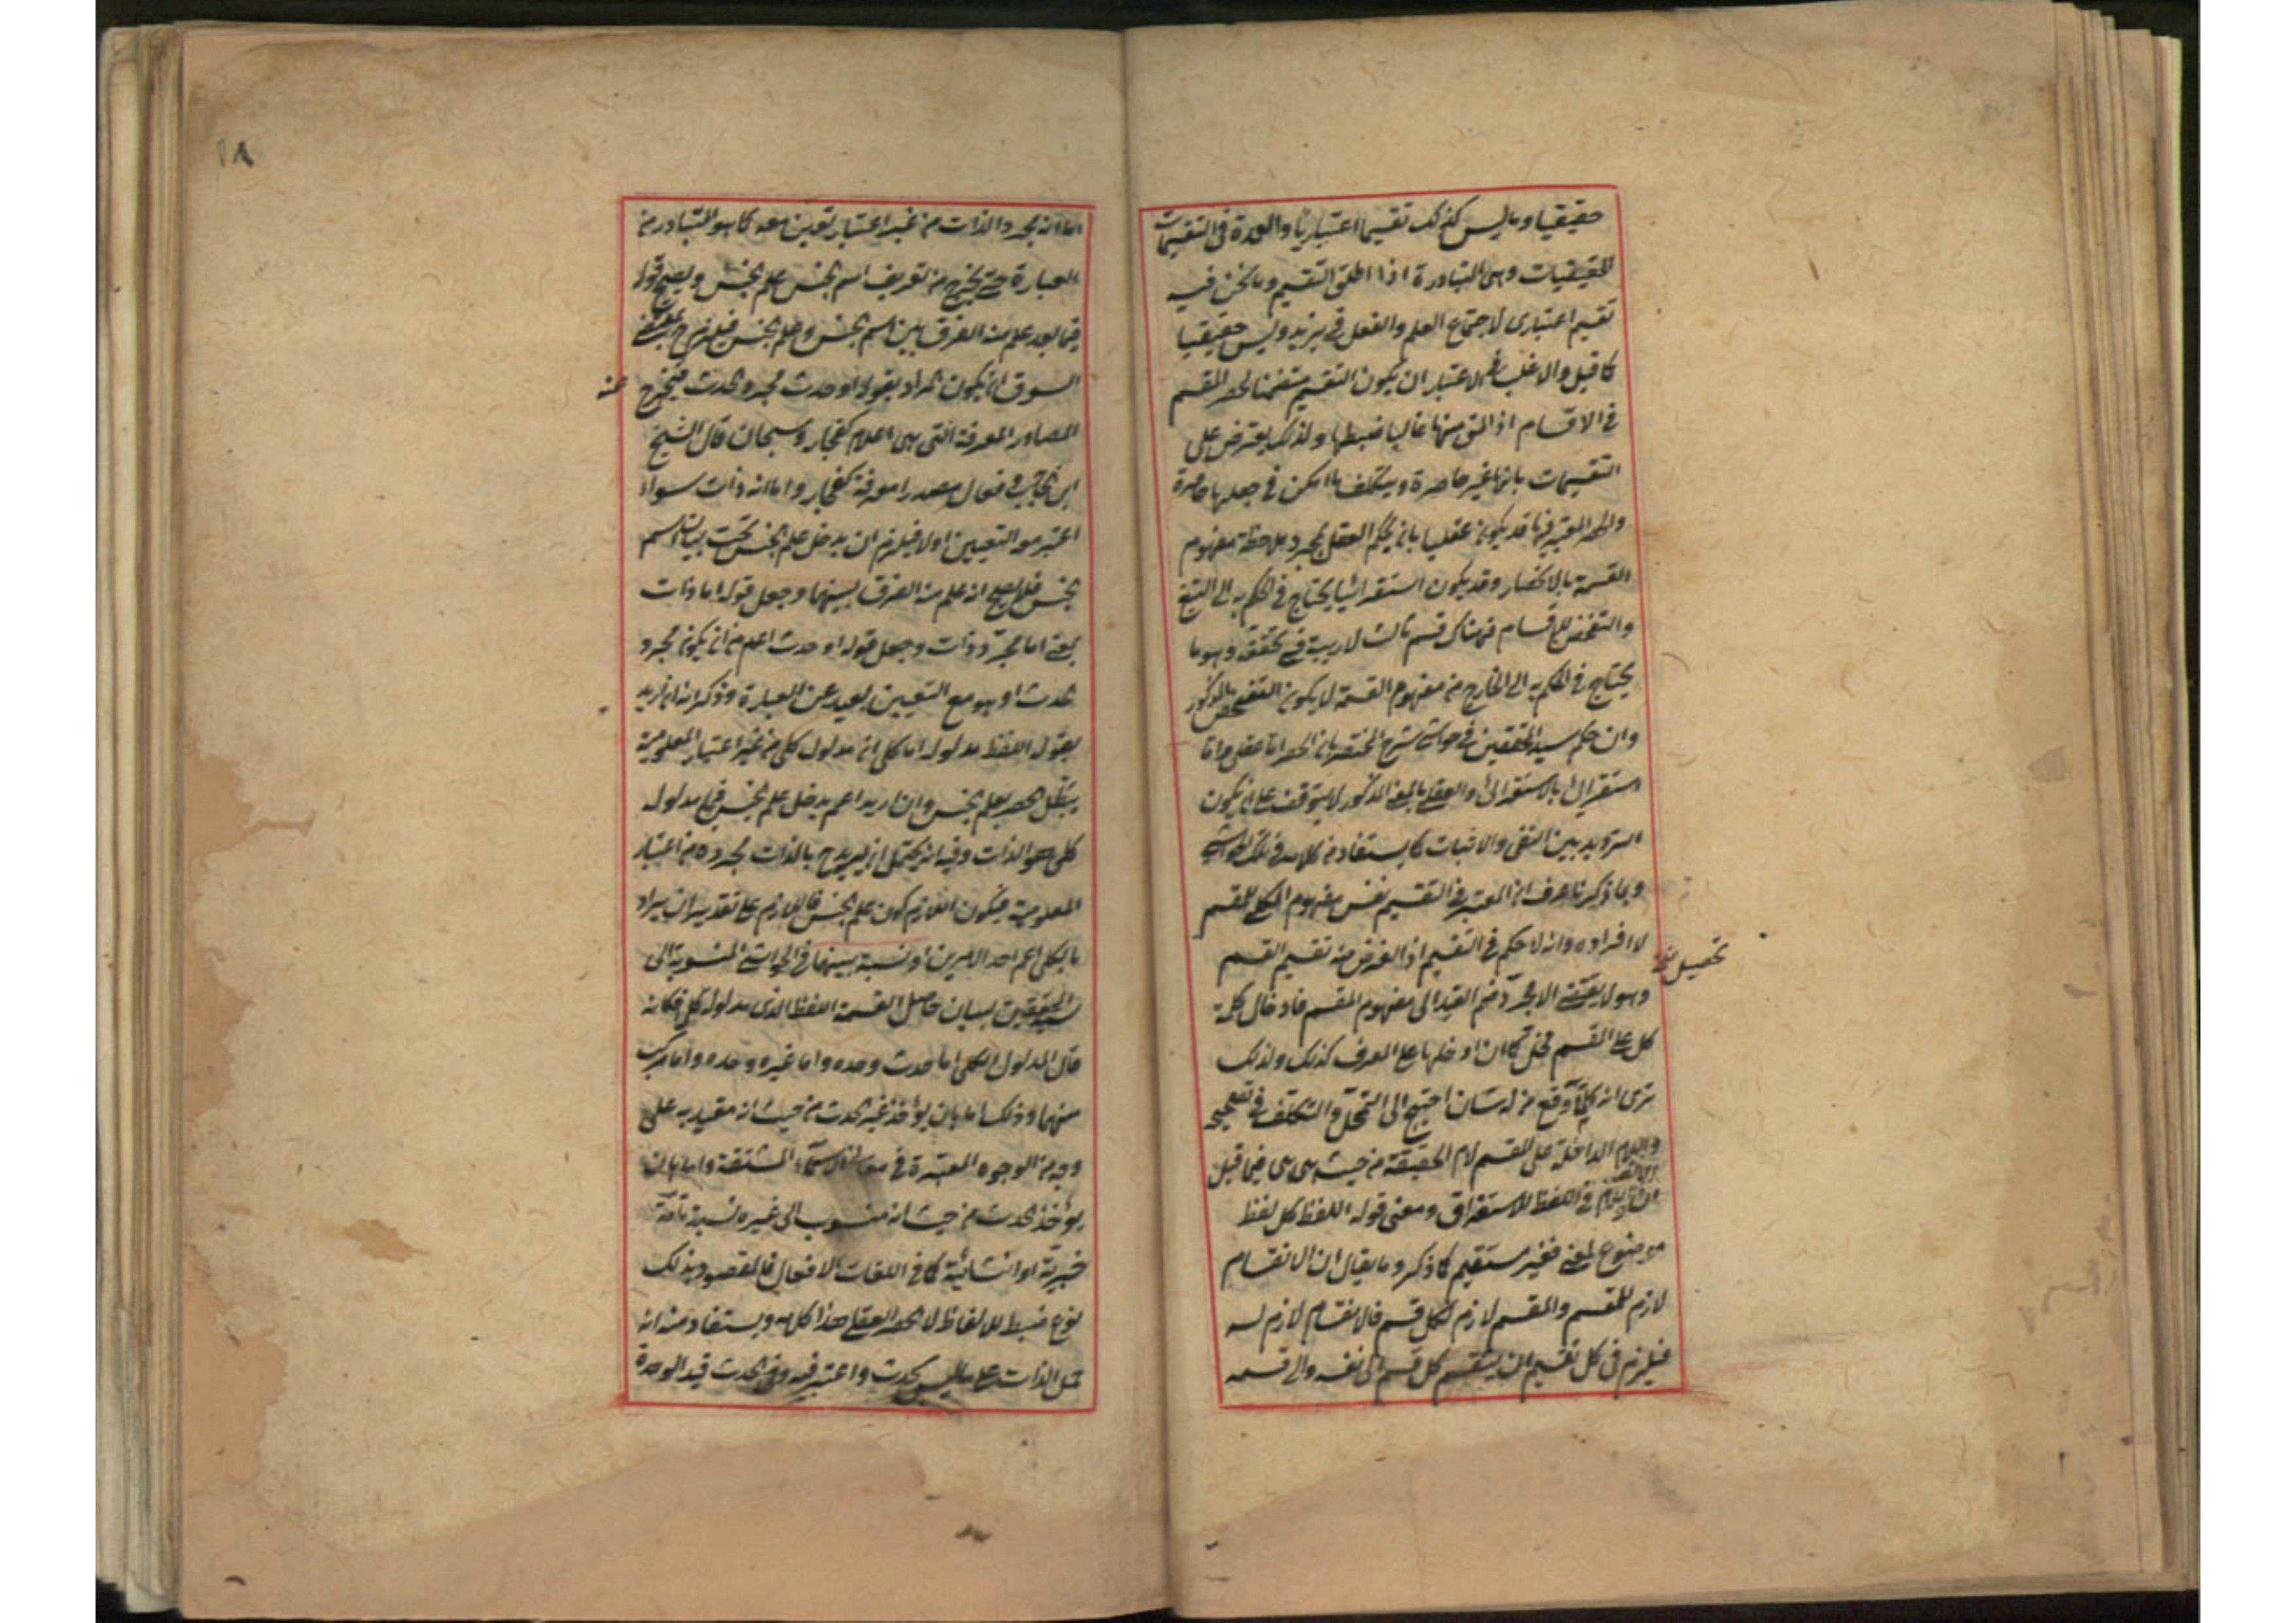 حقيقيا وما ليس كذلك تقسيما اعتباريا والعمدة في التقسيمات
الحقيقيات وهي المتبادرة اذا اطلق التقسيم وما نحن فيه
تقسيم اعتباري لاجتماع العلم والفعل في يزيد وليس حقيقيا
كما قيل والاغلب في الاعتبار ان يكون التقسيم متضمنا لحصر المقسم
في الاقسام اذ المق منها غالبا ضبطها ولذلك يعترض على
التقسيمات بانها غير حاصرة ويتكلف ما امكن في جعلها حاصرة
والحصر المعتبر فيها قد يكون عقليا بان يحكم العقل بمجرد ملاحظة مفهوم
القسمة بالانحصار وقد يكون استقرائيا يحتاج في الحكم به الى التتبع
والتفحص للاقسام فهناك قسم ثالث لا ريب في تحققه وهو ما
يحتاج في الحكم به الى الخارج من مفهوم القسمة لا يكون التفحص المذكور
وان حكم سيد المحققين في حواشي شرح المختصر بان الحصر اما عقلي واما
استقرائي بالاستقرائي والعقلي بالمعنى المذكور لا يتوقف على ان يكون
الترديد بين النفي والاثبات كما يستفاد من كلامه في تلك الحواشي
وبما ذكرنا عرف ان المعتبر في التقسيم نفس مفهوم الكلي المقسم
لا افراده وانه لا حكم في التقسيم اذ الغرض منه تقسيم القسم
تحصيل
وهو لا يقتضي الا مجرد ضم القيد الى مفهوم المقسم فادخال كلمة
كل على المقسم مخل كما ان ادخالها على المعرف كذلك ولذلك
ترى انه كلما وقع من له شان احتيج الى التمحل والتكلف في تصحيحه
واللام الداخلة على المقسم لام الحقيقة من حيث هي هي فما قيل
ان اللام في اللفظ للاستغراق ومعنى قوله اللفظ كل لفظ
موضوع لمعنى فغير مستقيم كما ذكر وما يقال ان الانقسام
لازم للمقسم والمقسم لازم لكل قسم فالانقسام لازم له
فيلزم في كل تقسيم ان ينقسم كل قسم الى نفسه والى قسمه
١٨
اما انه مجرد الذات من غير اعتبار تعين معه كما هو المتبادر من
العبارة حتى يخرج من تعريف اسم الجنس علم الجنس ويصح قوله
فيما بعد علم منه الفرق بين اسم الجنس وعلم الجنس فيلزم
السوق ان يكون المراد بقوله او حدث مجرد الحدث فيخرج عنه
المصادر المعرفة التي هي اعلام كفجار وسبحان قال الشيخ
ابن الحاجب وفعال مصدرا معرفة كفجار واما انه ذات سواء
اعتبر مع التعيين او لا فيلزم ان يدخل علم الجنس تحت بيان اسم
الجنس فلا يصح انه علم منه الفرق بينهما وجعل قوله اما ذات
بمعنى اما مجرد ذات وجعل قوله او حدث اعم من ان يكون مجرد
الحدث او هو مع التعيين بعيد عن العبارة وذكر انه ان اريد
بقوله اللفظ مدلوله اما كلي ان مدلوله كلي من غير اعتبار المعلومية
يبطل الحصر بعلم الجنس وان اريد اعم يدخل علم الجنس فيما مدلوله
كلي هو الذات وفيه انه يحتمل ان يريد ح بالذات مجرده من اعتبار
المعلومية فيكون اللازم كون علم الجنس فاللازم على تقدير ان يراد
بالكلي اعم احد الامرين او نسبة بينهما في الحواشي المنسوبة الى
سيد المحققين لبيان حاصل القسمة اللفظ الذي مدلوله كلي فكانه
قال المدلول الكلي اما حدث وحده واما غيره وحده واما مركب
منهما وذلك اما بان يؤخذ غير الحدث من حيث انه مقيد به على
وجه من الوجوه المعتبرة في معاني الاسماء المشتقة واما بان
يؤخذ الحدث من حيث انه منسوب الى غيره نسبة تامة
خبرية او انشائية كما في اللغات الافعال فالمقصود بذلك
نوع ضبط للالفاظ لا الحصر العقلي هذا كلامه ويستفاد منه انه
حمل الذات على ما ليس بحدث واعتبر فيه وفي الحدث قيد الوحدة